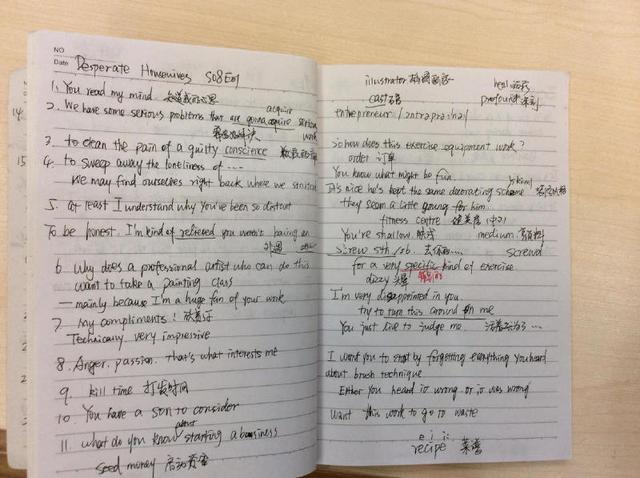 NO
Date Desperate Housewives S08E01
1. You read my mind
2. We have some serious problems that are gonna require serious
acquire
work
3. to clean the pain of a guilty conscience
4. to sweep away the loneliness of ....
We may find ourselves right back where we started
5. at least I understand why you've been so distant
To be honest. I'm kind of relieved you weren't
6. why does a professional artist who can do this
want to take a painting class
— mainly because I'm a huge fan of your work
7. my compliments!
Technically, very impressive
8. Anger. passion. that's what interests me
9. kill time 打发时间
10. You have a son to consider
about
11. what do you know starting a business
seed money 启动资金
14.
15
illustrator
heal
cast
profound 深刻
entrepreneur
so how does this exercise equipment work?
order 订单
You know what might be fun
It's nice he's kept the same decorating scheme
they seem a little young for him.
fitness centre 健身房
You're shallow. 肤浅 medium.
screw sth/sb. screwed
for a very specific kind of exercise
dizzy 头晕
I'm very disappointed in you
try to turn this around on me
You just live to judge me.
I want you to start by forgetting everything you heard
about brush technique
Either you heard it wrong or it was wrong
want this work to go to waste
recipe 菜谱